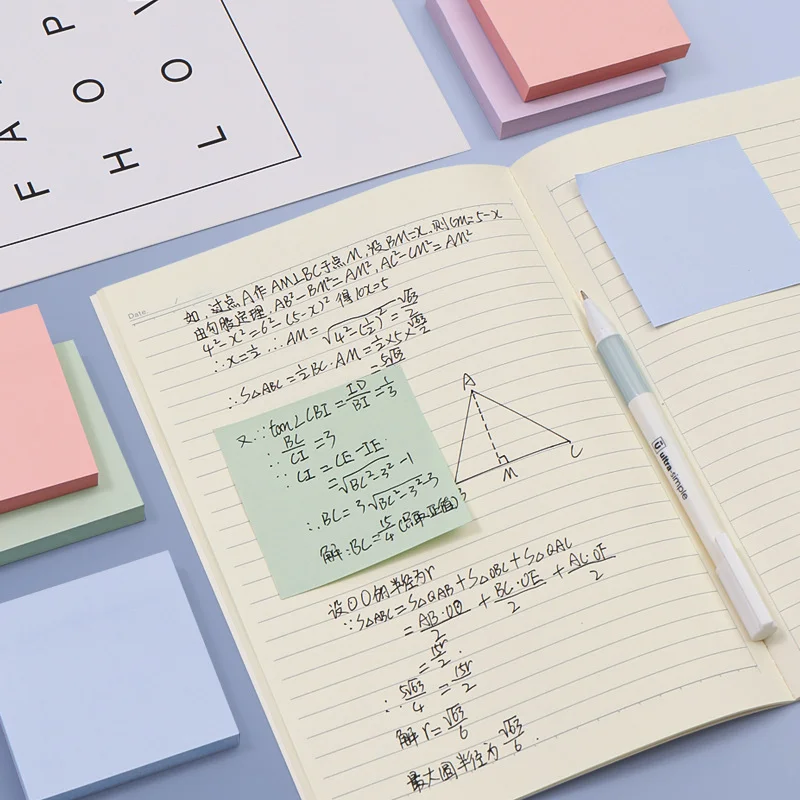 P
A O V
F H L O
Date /
如,过点A作AM⊥BC于点M,设BM=x,则CM=5-x
由勾股定理,AB²-BM²=AM²,AC²-CM²=AM²
4²-x²=6²-(5-x)² 得10x=5
∴x=½ ∴AM=√(4²-(½)²)=√63/2
∴S△ABC=½BC·AM=½×5×√63/2
=5√63
又∵tan∠CBI=ID/BI=1/3
∴BC/CI=3
∴CI=CE-IE
=√(BC²-3²)-1
∴BC=3√(BC²-3²)-3
解:BC=15/4(只取正值)
A
M
C
设⊙O的半径为r
∵S△ABC=S△OAB+S△OBC+S△OAC
=AB·OD/2+BC·OE/2+AC·OF/2
=15r/2.
∴5√63/4=15r/2
解r=√63/6
最大圆半径为√63/6.
ultra·simple